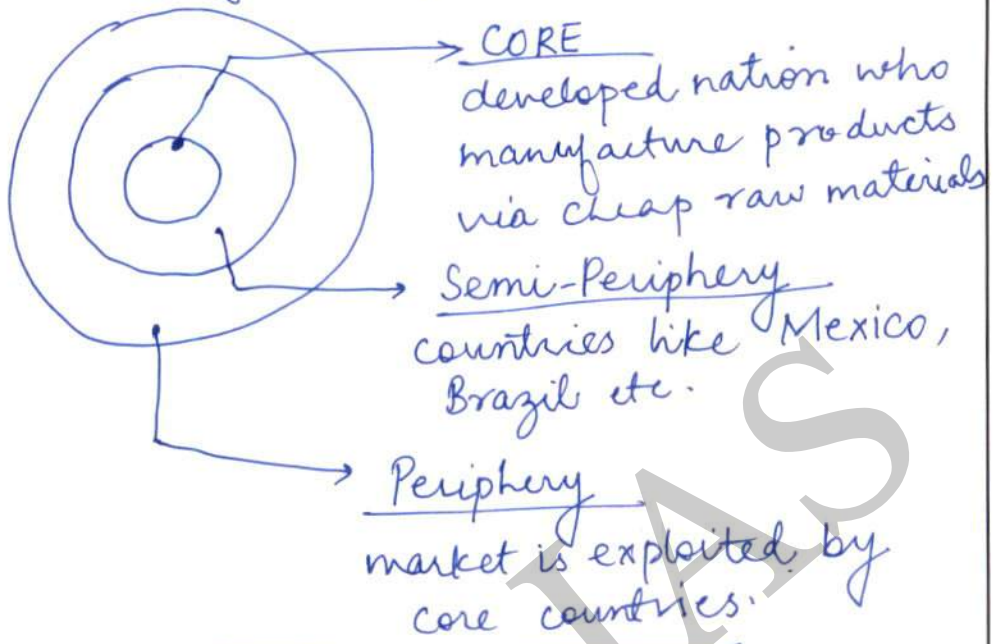 CORE
developed nation who
manufacture products
via cheap raw materials
Semi-Periphery
countries like Mexico,
Brazil etc.
Periphery
market is exploited by
core countries.
IAS